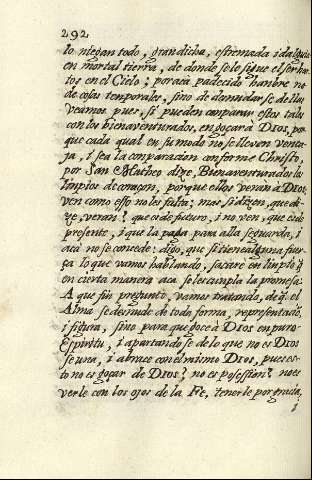 292
lo niegan todo, gran dicha, estremada idalguia
en mortal tierra, de donde se le sigue el ser har
tos en el Cielo; por acà padecido hambre no
de cosas temporales, sino de desnudar se de llas
veamos pues, si pueden comparar estos tales
con los bienaventurados, en goçar à DIOS, por
que cada qual en su modo no se lleven venta
ja, i sea la comparacion conforme Christo,
por San Matheo dize, Bienaventurados los
limpios de coraçon, porque ellos veran à DIOS;
ven como esso no les falta; mas si dizen, que di
ze, veran? que es de futuro, i no ven, que es de
presente, i que la paga para allà se guarda, i
acà no se concede: digo, que si tiene alguna fuer
ça lo que vamos hablando, sacare en limpio q̃
en cierta manera aca se les cumpla la promesa:
A que fin pregunto, vamos tratando, de q̃ el
Alma se desnude de toda forma, representaciõ,
i figura, sino para que goce à DIOS en puro
Espiritu, i apartando se de lo que no es DIOS
se una, i abrace con el mismo DIOS, pues es
to no es goçar de DIOS? no es possession? no es
verle con los ojos de la Fe, tenerle por gracia,
i